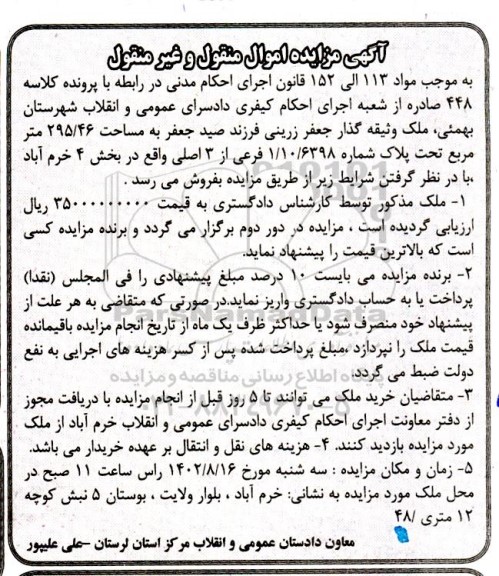 آگهی مزایده اموال منقول و غیر منقول
به موجب مواد ۱۱۳ الی ۱۵۲ قانون اجرای احکام مدنی در رابطه با پرونده کلاسه
۴۴۸ صادره از شعبه اجرای احکام کیفری دادسرای عمومی و انقلاب شهرستان
بهمئی، ملک وثیقه گذار جعفر زرینی فرزند صید جعفر به مساحت ۲۹۵/۴۶ متر
مربع تحت پلاک شماره ۱/۱۰/۶۳۹۸ فرعی از ۳ اصلی واقع در بخش ۴ خرم آباد
،با در نظر گرفتن شرایط زیر از طریق مزایده بفروش می رسد .
۱- ملک مذکور توسط کارشناس دادگستری به قیمت ۳۵۰۰۰۰۰۰۰۰۰ ریال
ارزیابی گردیده است ، مزایده در دور دوم برگزار می گردد و برنده مزایده کسی
است که بالاترین قیمت را پیشنهاد نماید.
۲- برنده مزایده می بایست ۱۰ درصد مبلغ پیشنهادی را فی المجلس (نقدا)
پرداخت یا به حساب دادگستری واریز نماید.در صورتی که متقاضی به هر علت از
پیشنهاد خود منصرف شود یا حداکثر ظرف یک ماه از تاریخ انجام مزایده باقیمانده
قیمت ملک را نپردازد ،مبلغ پرداخت شده پس از کسر هزینه های اجرایی به نفع
دولت ضبط می گردد.
۳- متقاضیان خرید ملک می توانند تا ۵ روز قبل از انجام مزایده با دریافت مجوز
از دفتر معاونت اجرای احکام کیفری دادسرای عمومی و انقلاب خرم آباد از ملک
مورد مزایده بازدید کنند. ۴- هزینه های نقل و انتقال بر عهده خریدار می باشد.
۵- زمان و مکان مزایده : سه شنبه مورخ ۱۴۰۲/۸/۱۶ راس ساعت ۱۱ صبح در
محل ملک مورد مزایده به نشانی: خرم آباد ، بلوار ولایت ، بوستان ۵ نبش کوچه
۱۲ متری /۴۸
معاون دادستان عمومی و انقلاب مرکز استان لرستان -علی علیپور
ParsNamadData
پایگاه اطلاع رسانی مناقصه و مزایده